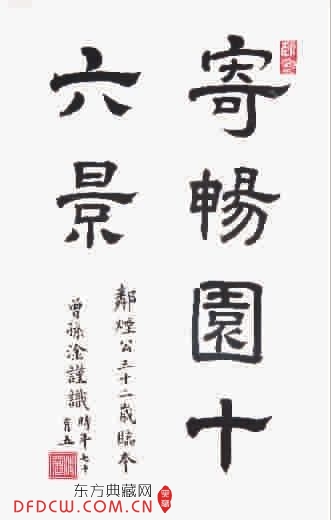 寄暢園十
六景
鄰煙公三十二歲臨本
曾孫淦謹識時年七十有五
东方典藏网
DFDCW.COM.CN